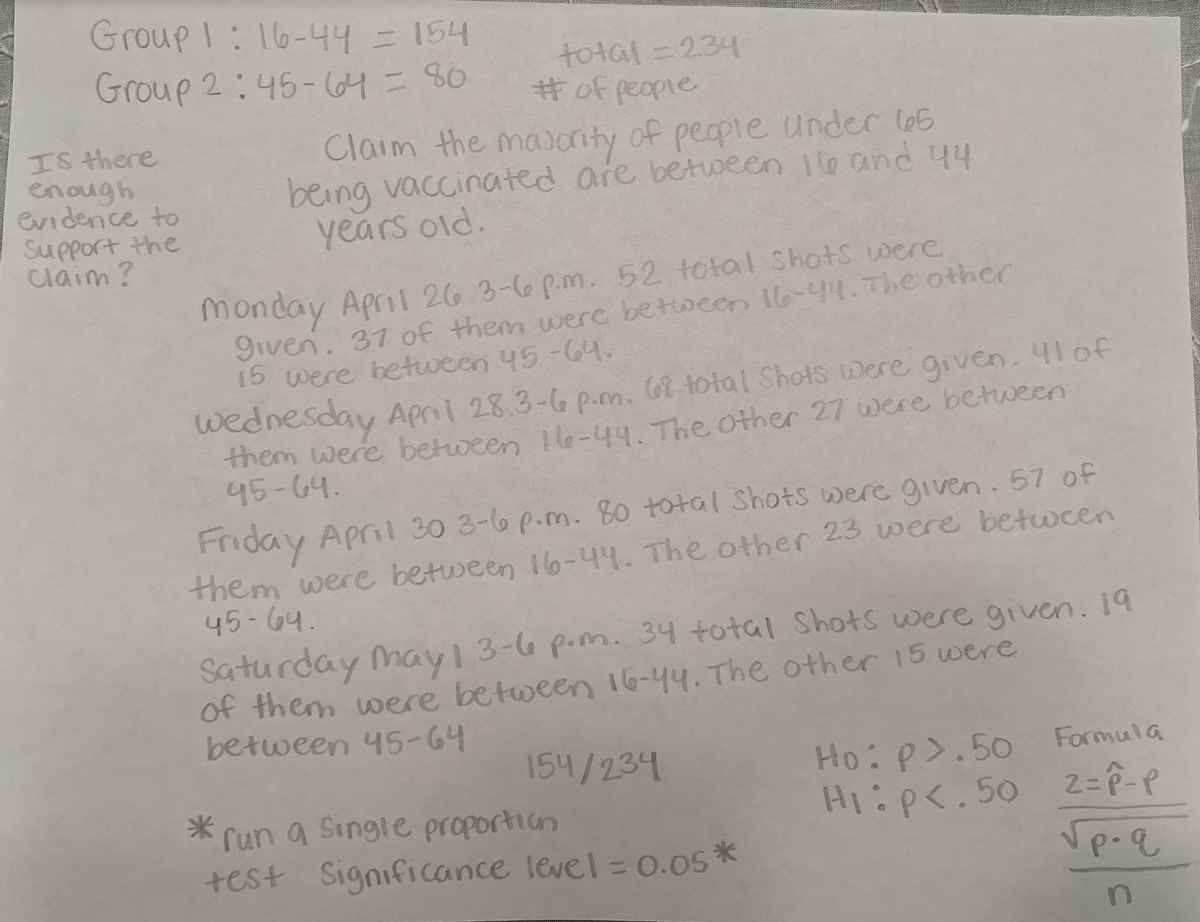 Group 1 : 16-44 = 154
Group 2 : 45-64 = 80
total = 234
# of people
Is there
enough
evidence to
support the
claim?
Claim the majority of people under 65
being vaccinated are between 16 and 44
years old.
Monday April 26 3-6 p.m. 52 total shots were
given. 37 of them were between 16-44. The other
15 were between 45-64.
Wednesday April 28 3-6 p.m. 68 total shots were given. 41 of
them were between 16-44. The other 27 were between
45-64.
Friday April 30 3-6 p.m. 80 total shots were given. 57 of
them were between 16-44. The other 23 were between
45-64.
Saturday May 1 3-6 p.m. 34 total shots were given. 19
of them were between 16-44. The other 15 were
between 45-64
154/234
* run a single proportion
test significance level = 0.05 *
H0: p > .50
H1: p < .50
Formula
z = p̂ - p
√p · q
n